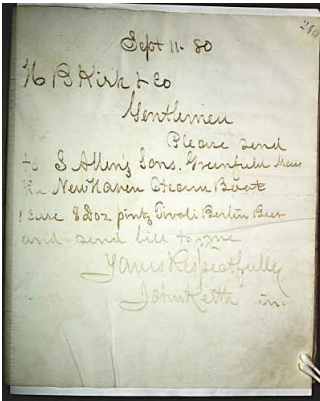 240
Sept 11. 80
H B Kirk & Co
Gentlemen
Please send
to S Allen's Sons. Greenfield Mass
New Haven Steam Boat
8 Doz pints Tivoli Berlin Beer
and send bill to me
Yours Respectfully
John Keith